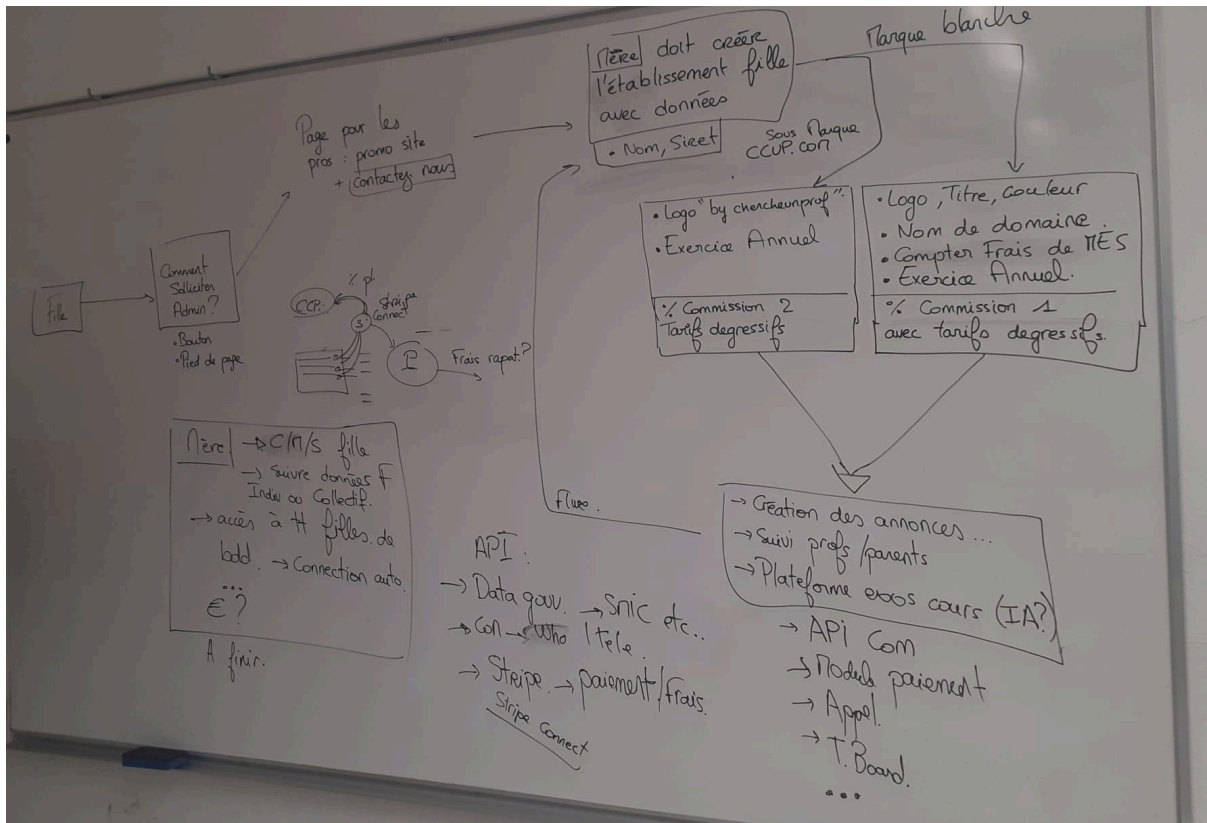 Fille
Comment
Solliciter
Admin ?
• Bouton
• Pied de page
Page pour les
pros : promo site
+ contactez nous
Mère doit créer
l'établissement fille
avec données
• Nom, Siret
Marque blanche
Sous Marque
CCUP.com
• Logo "by chercheunprof".
• Exercice Annuel
% Commission 2
Tarifs degressifs
• Logo, Titre, Couleur
• Nom de domaine.
• Compter Frais de MES
• Exercice Annuel.
% Commission 1
avec tarifs degressifs.
CCP.
S
Stripe
Connect
Frais rapat.?
Mère → C/M/S fille
→ Suivre données F
Indiv ou Collectif.
→ accès à # filles. de
bdd. → Connection auto.
...
€ ?
A finir.
API :
→ Data gouv. → Snic etc..
→ Com → Who / tele.
→ Stripe. → paiement/frais.
Stripe Connect
→ Création des annonces...
→ Suivi profs/parents
→ Plateforme exos cours (IA?)
→ API Com
→ Module paiement
→ Appel.
→ T. Board.
...